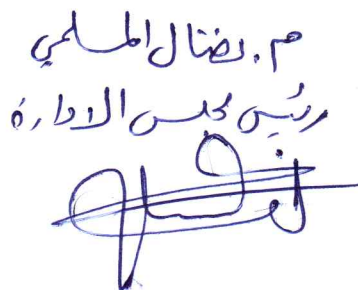 م. نضال المسلمي
رئيس مجلس الادارة